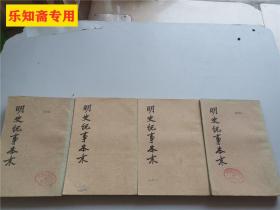 乐知斋专用
明史纪事本末
明史纪事本末
明史纪事本末
明史纪事本末